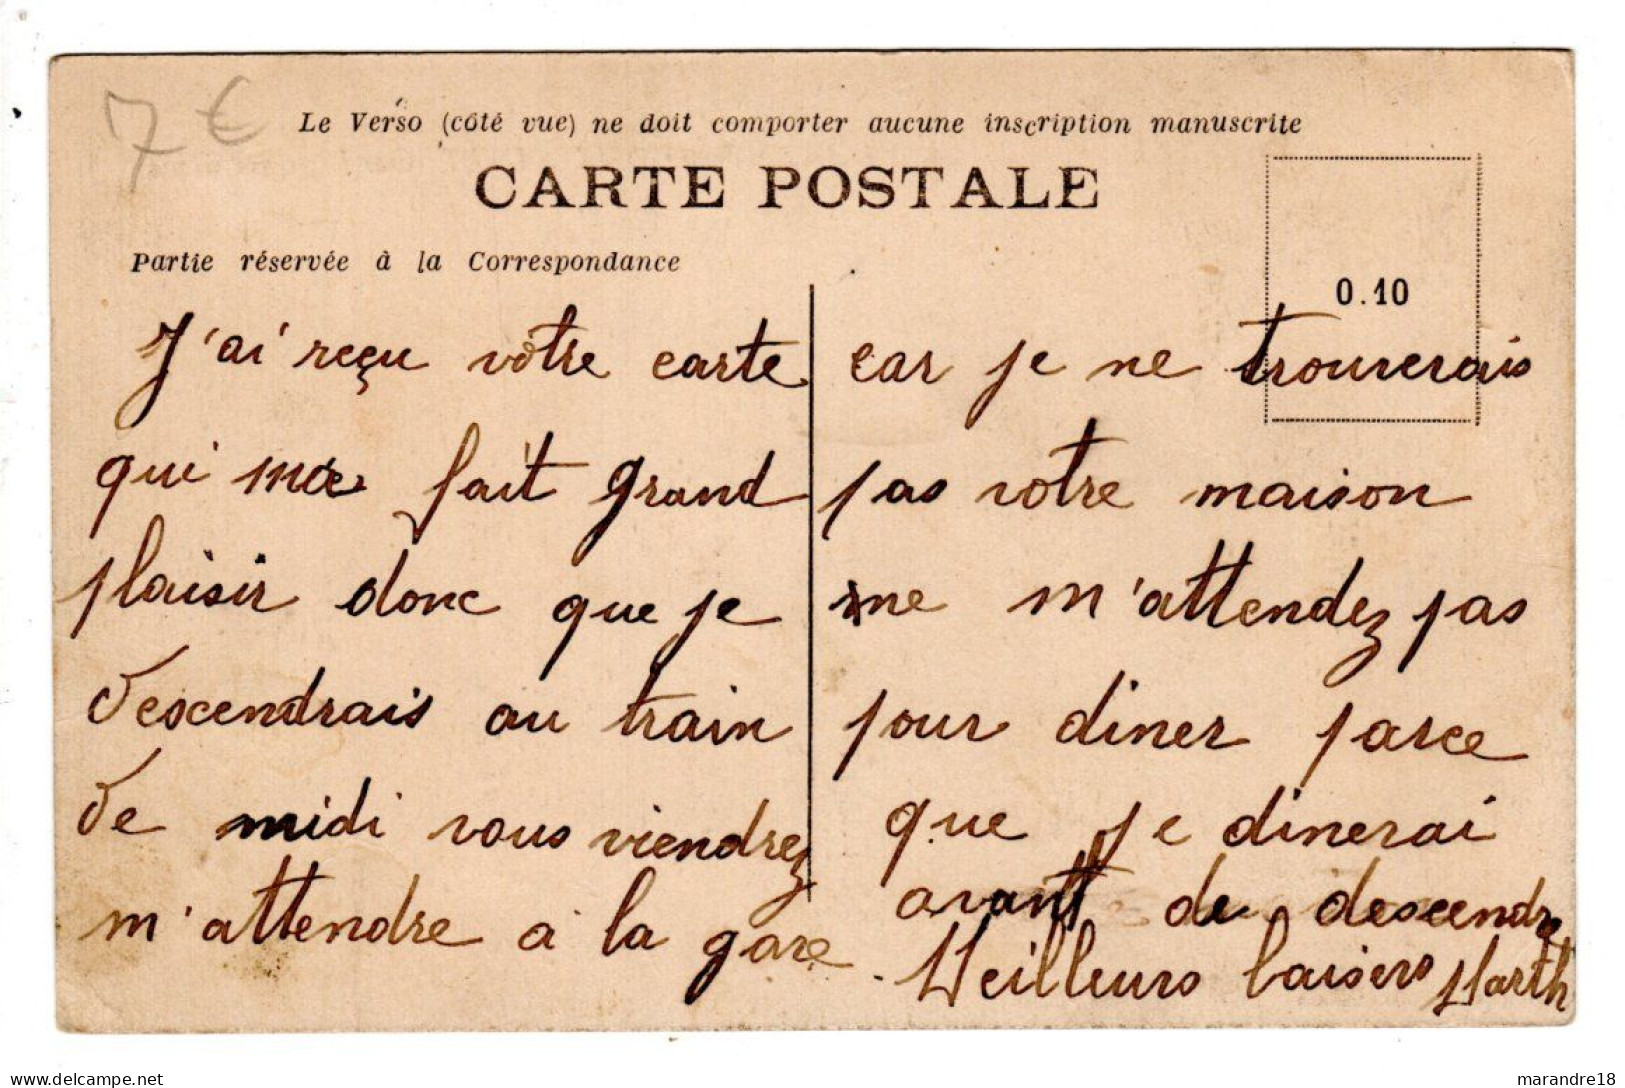 7 €
Le Verso (côté vue) ne doit comporter aucune inscription manuscrite
CARTE POSTALE
Partie réservée à la Correspondance
0.10
J'ai reçu vôtre carte
qui me fait grand
plaisir donc que je
descendrais au train
de midi vous viendrez
m'attendre a la gare
car je ne trouverais
pas votre maison
ne m'attendez pas
pour diner parce
que je dinerai
avant de descendre
Meilleurs baisers Marth
delcampe.net
marandre18